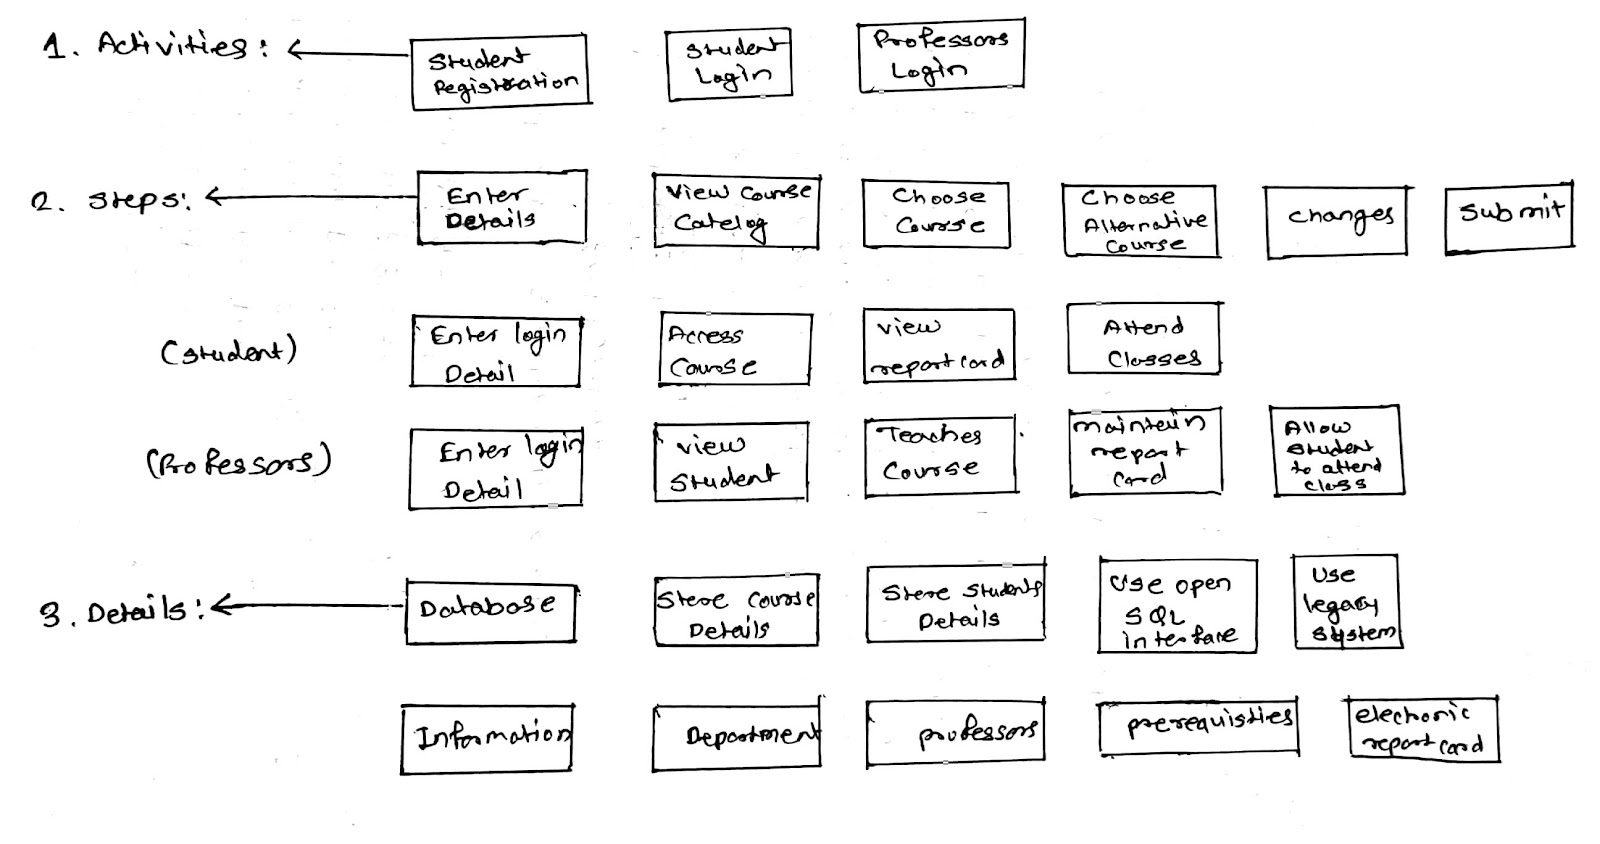 1. Activities:
Student
Registration
Student
Login
Professors
Login
2. Steps:
Enter
Details
View Course
Catelog
Choose
Course
Choose
Alternative
Course
Changes
Submit
(Student)
Enter login
Detail
Access
Course
View
report card
Attend
Classes
(Professors)
Enter login
Detail
View
Student
Teaches
Course
maintain
report
Card
Allow
Student
to attend
class
3. Details:
Database
Store Course
Details
Store Students
Details
Use open
SQL
interface
Use
legacy
System
Information
Department
professors
prerequisties
electronic
report card